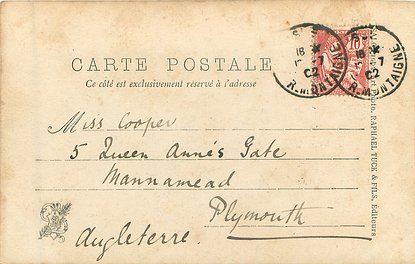 CARTE POSTALE
Ce côté est exclusivement réservé à l'adresse
Miss Cooper
5 Queen Anne's Gate
Mannamead
Plymouth
Angleterre.
16 *
7
02
R. MONTAIGNE
10
16 *
7
02
R. MONTAIGNE
Photo. RAPHAEL TUCK & FILS, Éditeurs